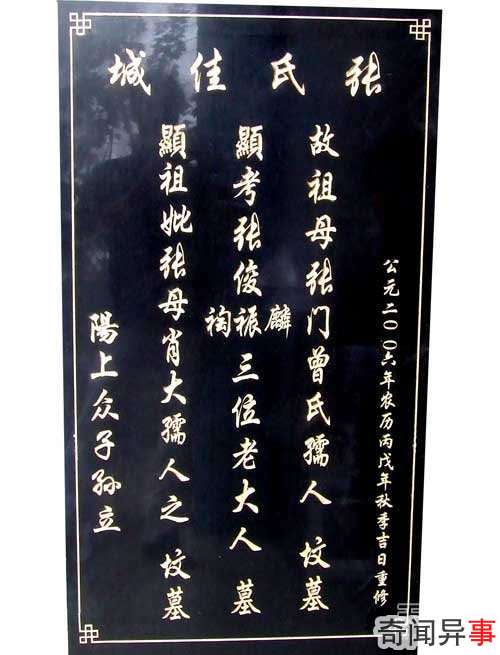 张氏佳城
公元二〇〇六年农历丙戌年秋季吉日重修
故祖母张门曾氏孺人 坟墓
顯考张俊麟振裪三位老大人 墓
顯祖妣张母肖大孺人之 坟墓
陽上众子孙立
奇闻异事